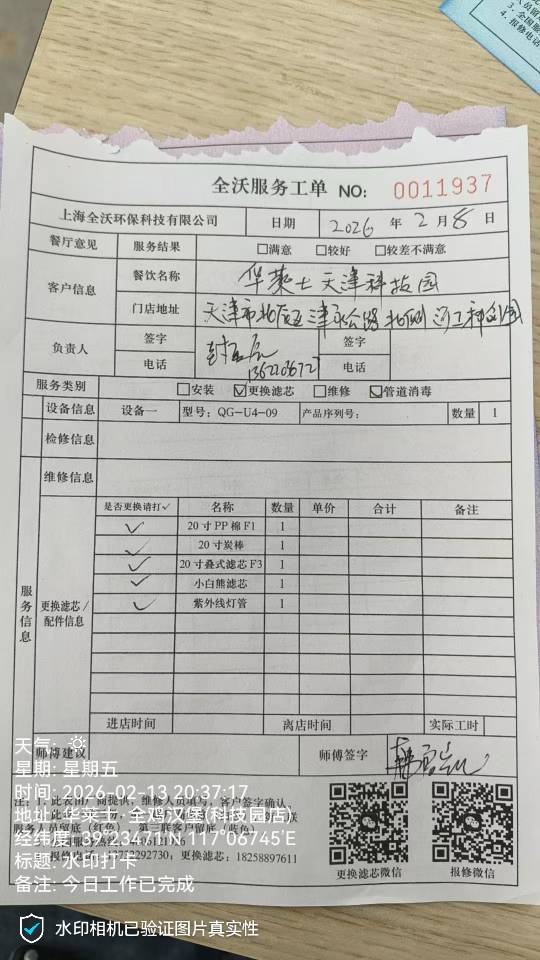 人员留
3. 全国服
4. 报修电话
全沃服务工单 NO: 0011937
上海全沃环保科技有限公司 日期 2026 年 2 月 8 日
餐厅意见 服务结果 □满意 □较好 □较差不满意
客户信息 餐饮名称 华莱士天津科技园
门店地址 天津市北辰区津永公路北侧
负责人 签字 签字
电话 电话
服务类别 □安装 ☑更换滤芯 □维修 ☑管道消毒
设备信息 设备一 型号: QG-U4-09 产品序列号: 数量 1
检修信息
维修信息
服务信息
更换滤芯/配件信息
是否更换请打✓ 名称 数量 单价 合计 备注
✓ 20寸PP棉F1 1
✓ 20寸炭棒 1
✓ 20寸叠式滤芯F3 1
✓ 小白熊滤芯 1
✓ 紫外线灯管 1
进店时间 离店时间 实际工时
师傅建议 师傅签字
天气:
星期: 星期五
时间: 2026-02-13 20:37:17
地址: 华莱士·全鸡汉堡(科技园店)
经纬度: 39°23471'N 117°06745'E
标题: 水印打卡
备注: 今日工作已完成
注: 1. 此表由厂商提供, 维修人员填写, 客户签字确认
更换滤芯: 18258897611
更换滤芯微信 报修微信
水印相机已验证图片真实性